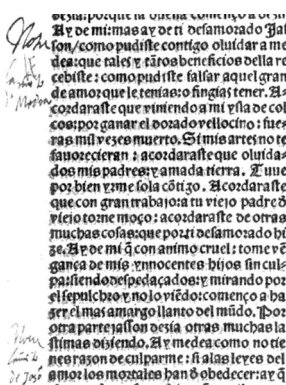 dezia: porque la buena començo a dezir
Ay de mi: mas ay de ti desamorado Jas
son/como pudiste contigo oluidar a me
dea: que tales y tãtos beneficios della re
cebiste: como pudiste falsar aquel gran
de amor que le tenias: o fingias tener. A-
cordaraste que viniendo a mi ysla de col
cos: por ganar el dorado vellocino: fue-
ras mil vezes muerto. Si mis artes no te
fauorecieran: acordaraste que oluida-
dos mis padres: y amada tierra. Tuue
por bien yrme sola cõtigo. Acordaraste
que con gran trabajo: a tu viejo padre d̃
viejo torne moço: acordaraste de otras
muchas cosas: que por ti desamorado hi
ze. Ay de mi q̃ con animo cruel: tome vẽ
gança de mis ynnocentes hijos sin cul-
pa: siendo despedaçados: y mirando por
el sepulchro y no lo viẽdo: començo a ha
zer el mas amargo llanto del mũdo. Por
otra parte jasson dezia otras muchas la
stimas diziendo. Ay medea como no tie
nes razon de culparme: si a las leyes del
amor los mortales han d̃ obedecer: ay q̃